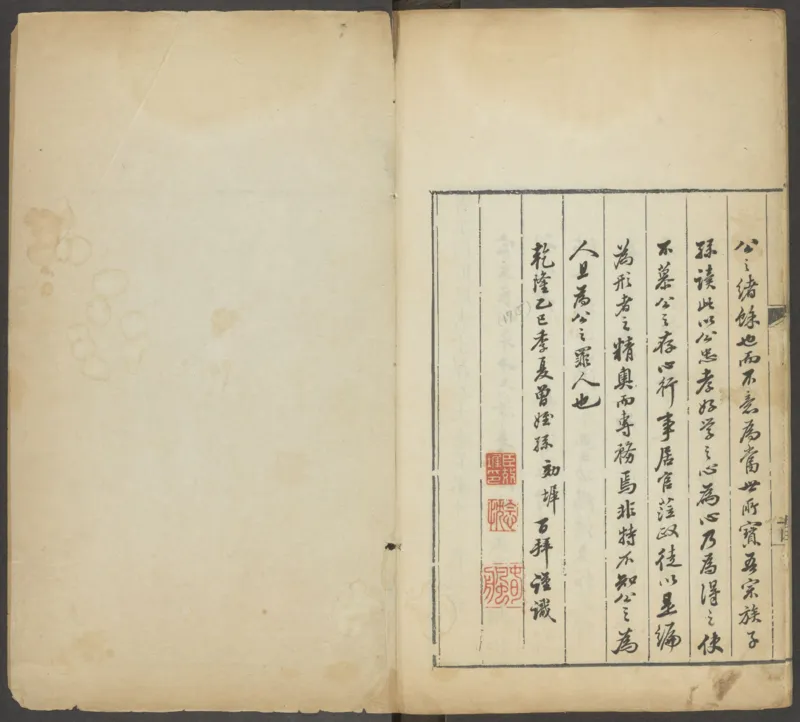 公之緒餘也而不意為當世所寶吾宗族子
孫讀此以公忠孝好學之心為心乃為得之使
不慕公之存心行事居官蒞政徒以是編
為形者之精奧而專務焉非特不知公之為
人且為公之罪人也
乾隆乙巳季夏曾姪孫効墀百拜謹識